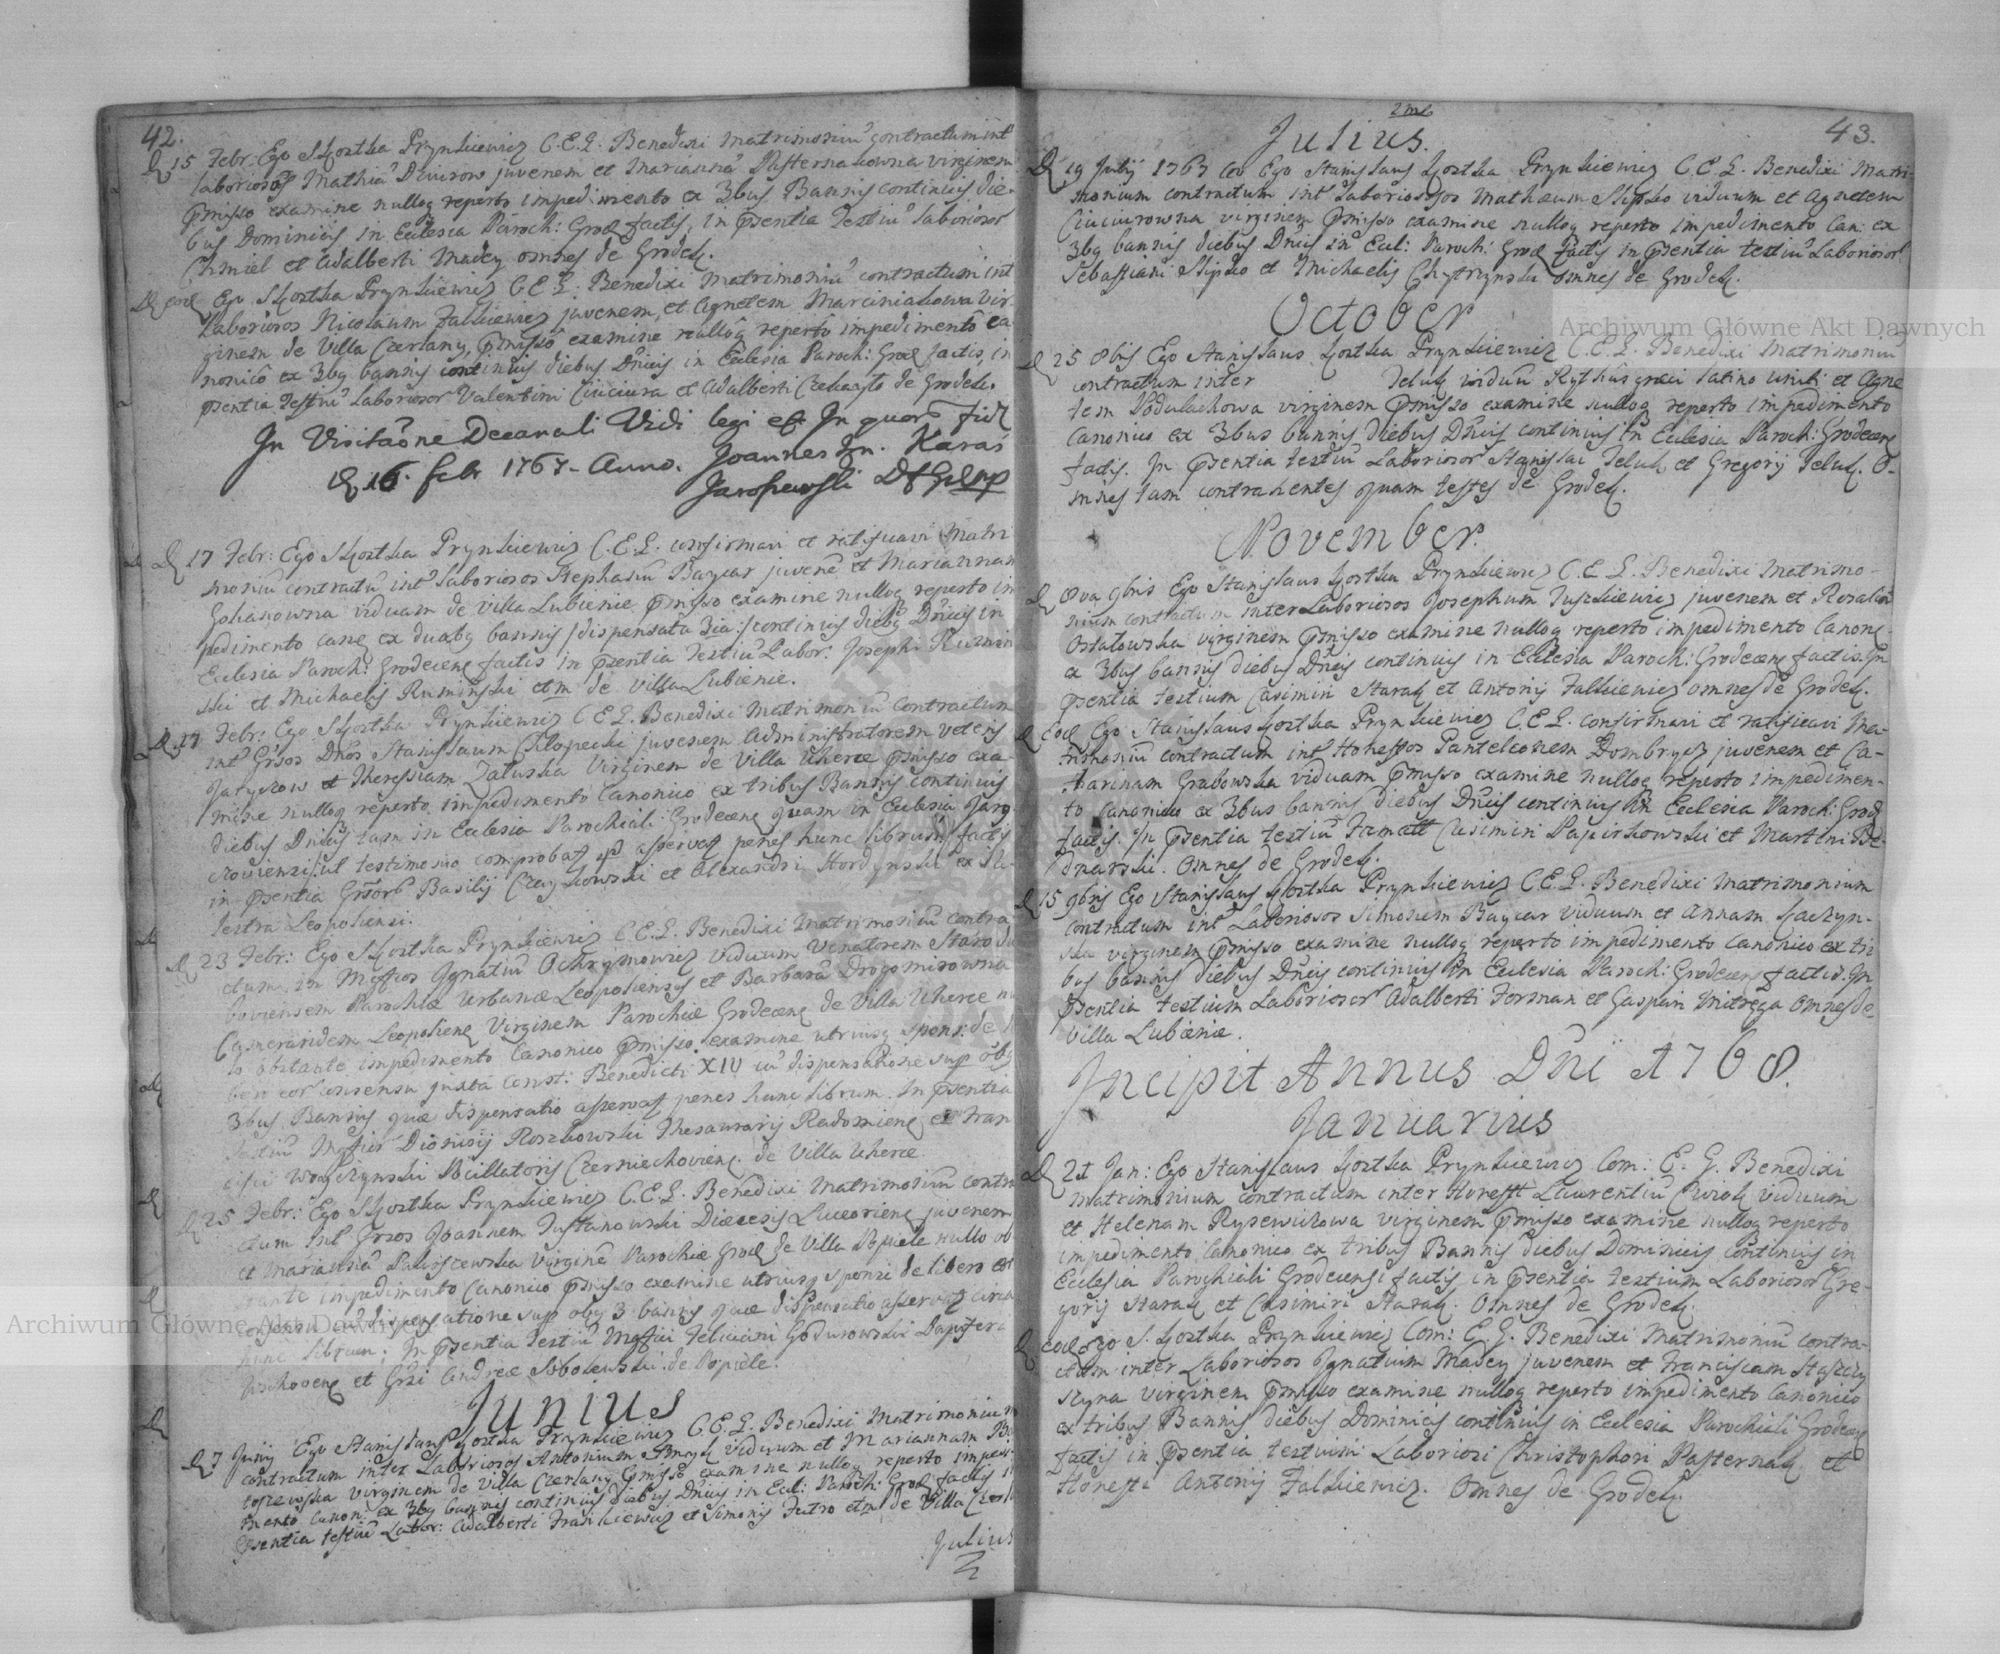 42.
D 15 Febr: Ego SKostka Prynkiewicz C.E.G. Benedixi Matrimoniũ contractum int
laboriosos Mathiã juvenem et Mariannã Pasternakowna virginem
pmisso examine nulloq reperto impedimento ex 3bus Bannis continuis die-
bus Dominicis in Eclesia Paroch: Grod factis, in psentia Testiũ laborioso͞r
Chmiel et Adalberti Madey omnes de Grodek.
D eod Ego SKostka Prynkiewicz C.E.G. Benedixi Matrimoniũ contractum int
Laboriosos Nicolaum Falkiewicz juvenem, et Agnetem Marciniakowa vir-
ginem de Villa Czerlany, pmisso examine nulloq reperto impedimento ca
nonico ex 3bq bannis continuis diebus Dnicis in Eclesia Paroch: Grod factis, in
psentia Testiũ Laborioso͞r Valentini Ciuciura et Adalberti de Grodek.
In Visitaõne Decanali Vidi legi et In quorũ fid
D 16 febr 1767 Anno. Joannes Karas
Jaroszewski
D 17 Febr: Ego SKostka Prynkiewicz C.E.G. confirmavi et ratificavi Matri
moniũ contractũ int laboriosos Stephanũ Baycar juvenẽ et Mariannam
viduam de villa Lubienie pmisso examine nulloq reperto im
pedimento cane ex duabq bannis /dispensata 3ia:/ continuis diebq Dnicis in
Eclesia Paroch: Grodecens factis in psentia Testiũ Labor: Josephi Rumin
ski et Michaelis Ruminski etm de Villa Lubienie.
D 17 Febr: Ego SKostka Prynkiewicz C.E.G. Benedixi Matrimoniũ Contractum
int Grsos Dnos Stanislaum Chlopecki juvenem Administratorem veteris
Jaryczow et Theressiam Zaluska Virginem de Villa Uherce pmisso exa-
mine nulloq reperto impedimento Canonico ex tribus Bannis continuis
diebus Dnicis tam in Eclesia Parochiali Grodecens quam in Eclesia Jary
czoviensi/:ut testimonio comprobat qd asservat penes hunc librum:/ factis
in psentia Grsor Basilij Czaykowski et Alexandri Hordynski ex
Leopoliensi.
D 23 Febr: Ego SKostka Prynkiewicz C.E.G. Benedixi Matrimoniũ contra
ctum in Mgfcos Ignatiũ Ochrymowicz viduum Venatorem
boviensem Parochiæ Urbanæ Leopoliensis et Barbarã Drogomirowna
Camerariden Leopoliens Virginem Parochiæ Grodecens de Villa Uherce nu
lo obstante impedimento Canonico pmisso examine utriusq sponsi de li
bero eor consensu juxta Const: Benedicti XIV cũ dispensatione sup obq
3bus Bannis quæ dispensatio asservat penes hunc librum. In psentia
Testiũ Mgfcor Dionisij Roszkowski Thesaurarij Radomiens et Fran
cisci Pocillatoris Czerniechoviens. de Villa Uherce
D 25 Febr: Ego SKostka Prynkiewicz C.E.G. Benedixi Matrimoniũ contra
ctum int Grsos Joannem Diœcesis Luceoriens juvenem
et Mariannã Virginẽ Parochiæ Grod de Villa Popiele nullo ob
stante impedimento Canonico pmisso examine utriusq sponsi de libero eor
consensu cũ dispensatione sup obq 3 bannis quæ dispensatio asservat circa
hunc librum; In psentia Testiũ Mgfici Feliciani Godurowski Dapiferi
et Grsi Andreæ Sobolewski de Popiele.
Junius
D 7 Junij Ego Stanislaus Kostka Prynkiewicz C.E.G. Benedixi Matrimoniũ
contractum inter Laboriosos Antonium viduum et Mariannam
virginem de villa Czerlany pmisso examine nulloq reperto impedi-
mento Canon: ex 3bq bannis continuis diebus Dnicis in Ecl: Paroch: Grod factis in
psentia testiũ Labor: Adalberti Frankiewicz et Simonis Futro etm de Villa Czerla
Julius
43.
Julius.
D 19 Julij 1767 Ego Stanislaus Kostka Prynkiewicz C.E.G. Benedixi Matri-
monium contractum int Laboriosos Mathæum Slipko viduum et Agnetem
Ciuciurowna virginem pmisso examine nulloq reperto impedimento Can: ex
3bq bannis diebus Dnicis in Ecl: Paroch: Grod factis in psentia testiũ Laborioso͞r
Sebastiani Slipko et Michaelis omnes de Grodek.
October
D 25 8bris Ego Stanislaus Kostka Prynkiewicz C.E.G. Benedixi Matrimoniũ
contractum inter Teluk viduũ Rythus græci latino uniti et Agne
tem Podulachowa virginem pmisso examine nulloq reperto impedimento
Canonico ex 3bus bannis diebus Dnicis continuis in Eclesia Paroch: Grodecens
factis. In psentia testiũ Laborioso͞r Stanislai Teluk et Gregorij Teluk. O-
mnes tam contrahentes quam testes de Grodek.
November.
D 8va 9bris Ego Stanislaus Kostka Prynkiewicz C.E.G. Benedixi Matrimo-
nium contractum inter Laboriosos Josephum Juszkiewicz juvenem et Rosaliã
Ostalowska virginem pmisso examine nulloq reperto impedimento Canone
ex 3bus bannis diebus Dnicis continuis in Eclesia Paroch: Grodecens factis. In
psentia testium Casimiri Starak et Antonij Falkiewicz omnes de Grodek.
D eod Ego Stanislaus Kostka Prynkiewicz C.E.G. confirmavi et ratificavi Ma-
trimoniũ contractum int Honestos Panteleonem Dombrycz juvenem et Ca-
tharinam Grabowska viduam pmisso examine nulloq reperto impedimen-
to Canonico ex 3bus bannis diebus Dnicis continuis in Eclesia Paroch: Grod
factis. In psentia testiũ Casimiri Papirkowski et Martini Be-
dnarski. Omnes de Grodek.
D 15 9bris Ego Stanislaus Kostka Prynkiewicz C.E.G. Benedixi Matrimonium
contractum int Laboriosos Simonem Baycar viduum et Annam Kaczyn-
ska virginem pmisso examine nulloq reperto impedimento Canonico ex tri
bus bannis diebus Dnicis continuis in Eclesia Paroch: Grodecens factis. In
psentia testium Laborioso͞r Adalberti Forman et Gaspari Mitręga Omnes de
villa Lubieniæ.
Incipit Annus Dñi 1768.
Januarius
D 21 Jan: Ego Stanislaus Kostka Prynkiewicz Com: E. G. Benedixi
Matrimonium contractum inter Honestos Laurentiũ Cwiok viduum
et Helenam Rysewiczowa virginem pmisso examine nulloq reperto
impedimento Canonico ex tribus Bannis diebus Dominicis continuis in
Eclesia Parochiali Grodecensi factis in psentia testium Laborioso͞r Gre-
gorij Starak et Casimiri Starak. Omnes de Grodek.
D eod Ego S. Kostka Prynkiewicz Com: E. G. Benedixi Matrimoniũ contra-
ctum inter Laboriosos Ignatium Madey juvenem et Franciscam
virginem pmisso examine nulloq reperto impedimento Canonico
ex tribus Bannis diebus Dominicis continuis in Eclesia Parochiali Grodecens
factis in psentia testium Laboriosi Christophori Pasternak et
Honesti Antonij Falkiewicz. Omnes de Grodek.
Archiwum Główne Akt Dawnych
Archiwum Główne Akt Dawnych